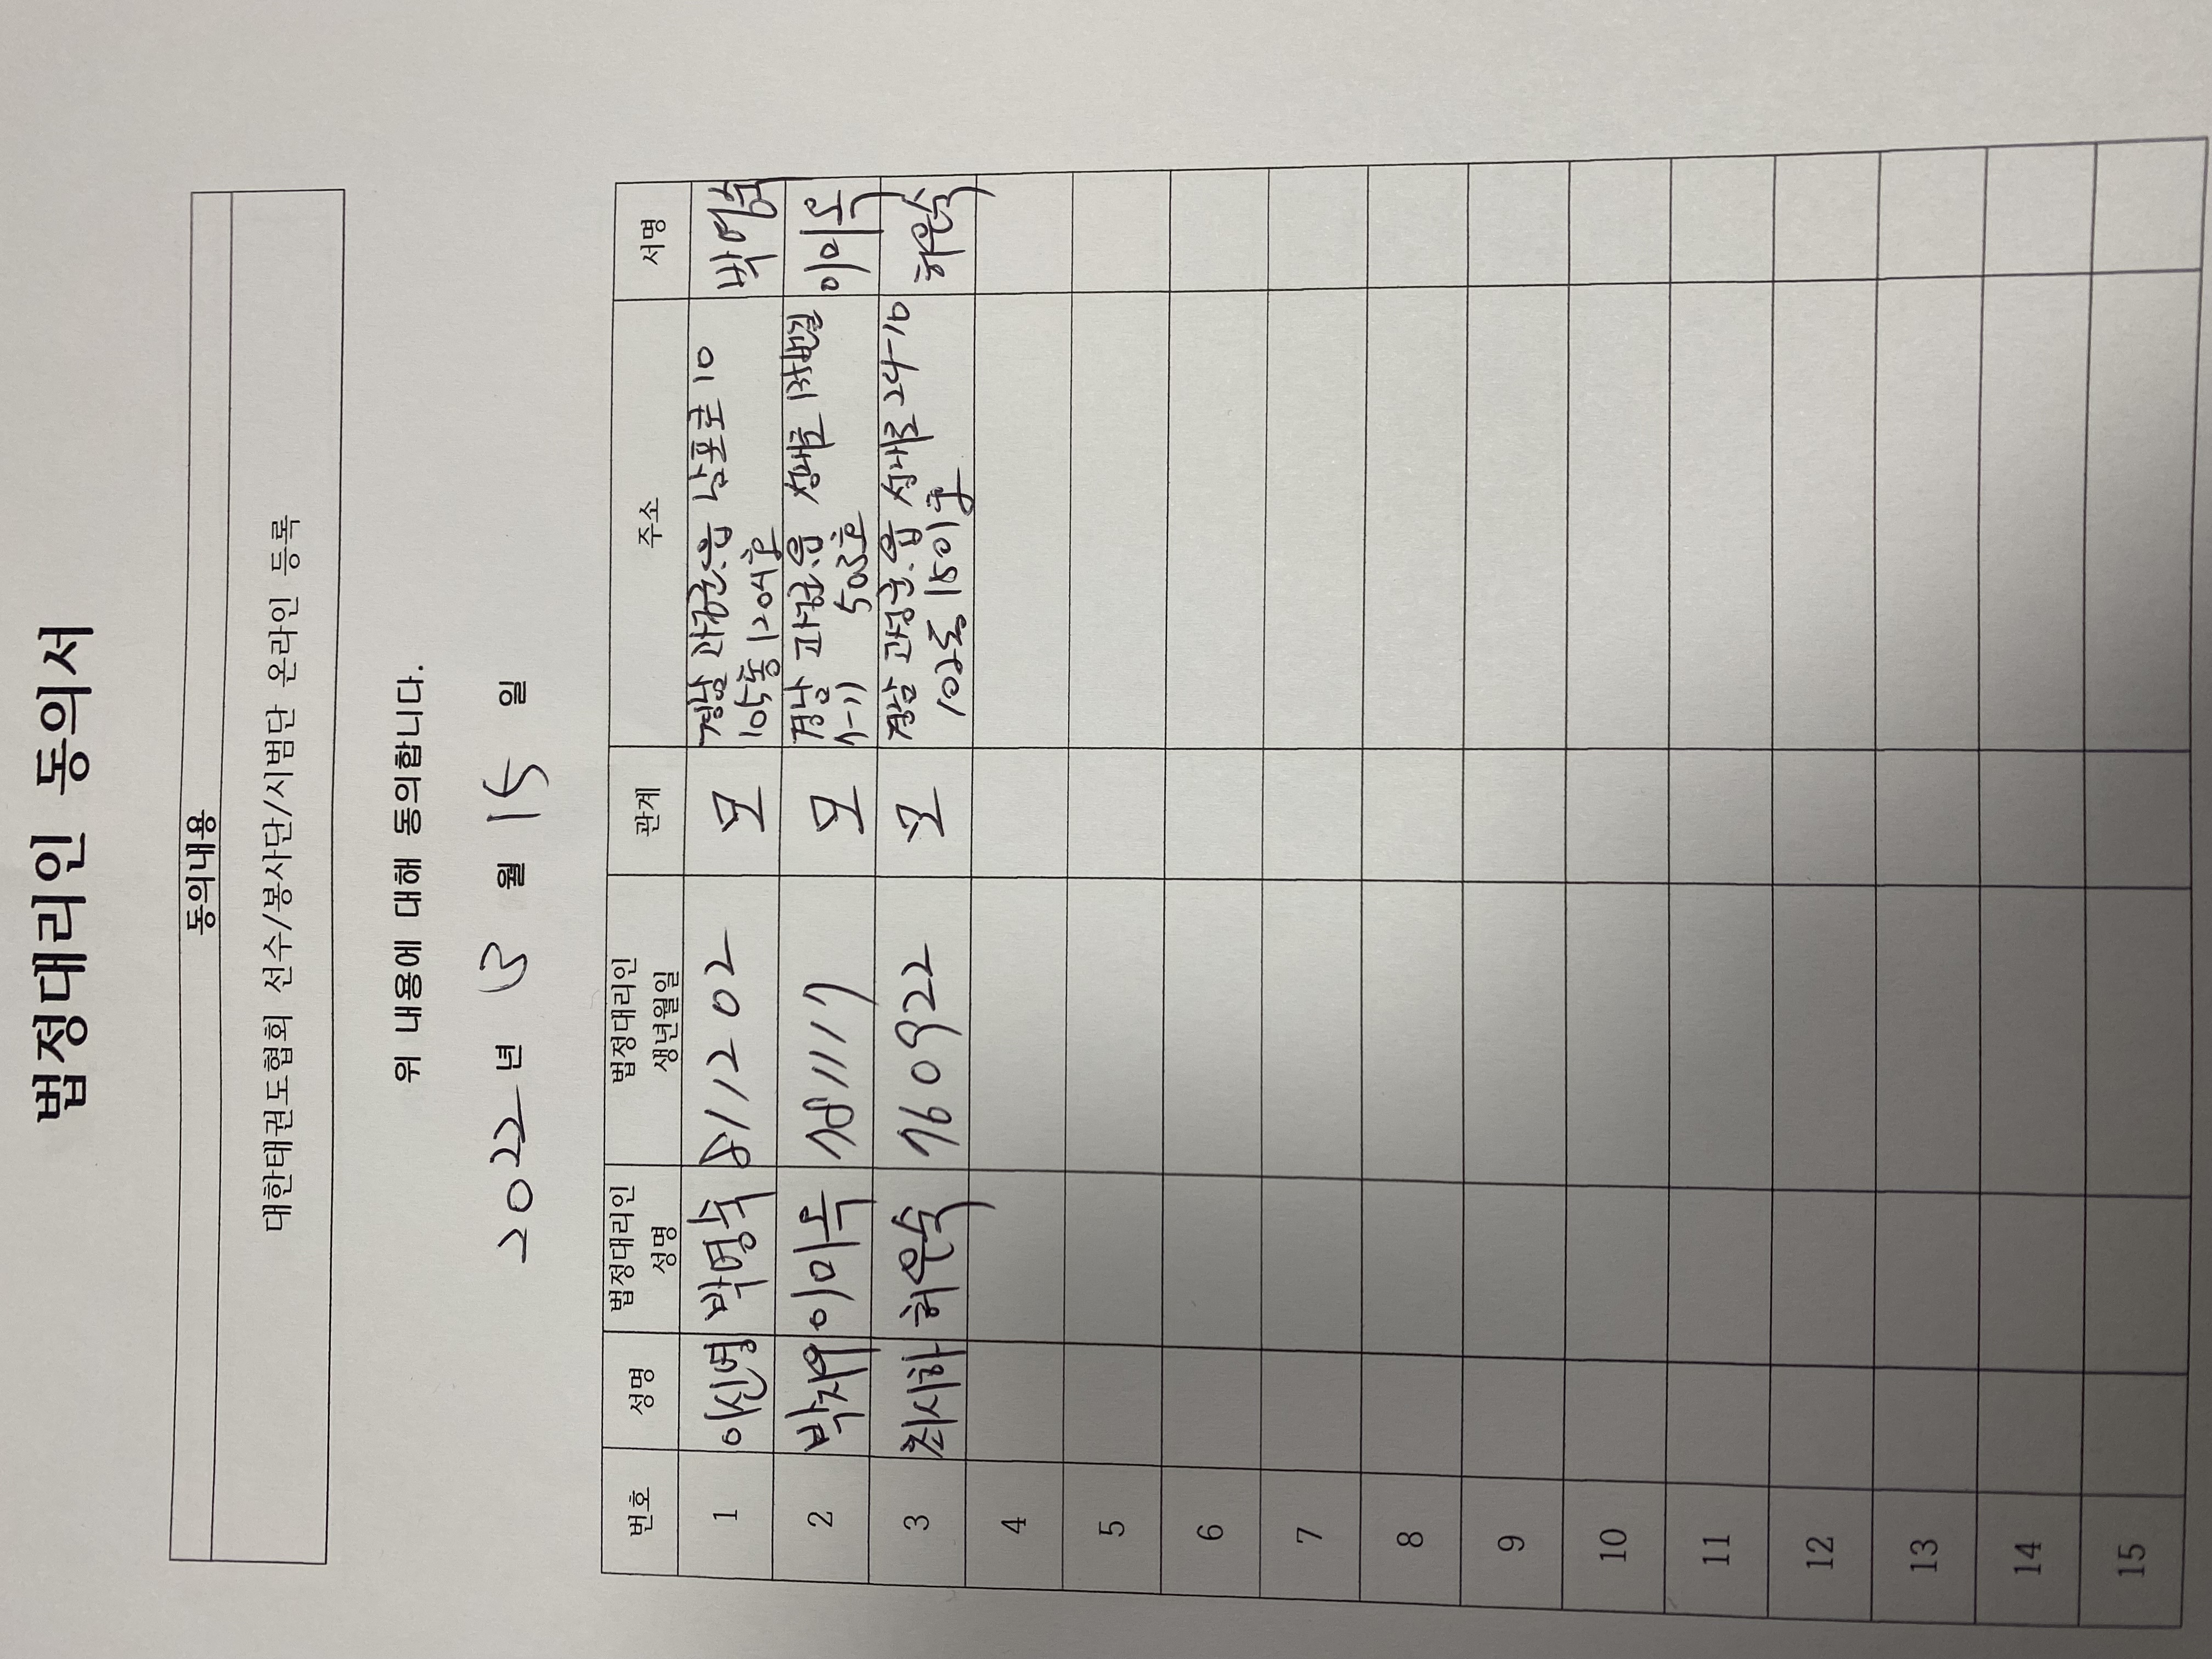 법정대리인 동의서
동의내용
대한태권도협회 선수/봉사단/시범단 온라인 등록
위 내용에 대해 동의합니다.
2022년 월 15 일
번호 성명 법정대리인 성명 법정대리인 생년월일 관계 주소 서명
1 이신영 박명숙 811202 모 경남 남포로 10
1204호
2 이미옥 781117 모 경남 성내로 이미옥
7-11 503호
3 최시하 허은숙 760922 모 경남 고성군.읍 성내로 24-16 허은숙
102동 1501호
4
5
6
7
8
9
10
11
12
13
14
15